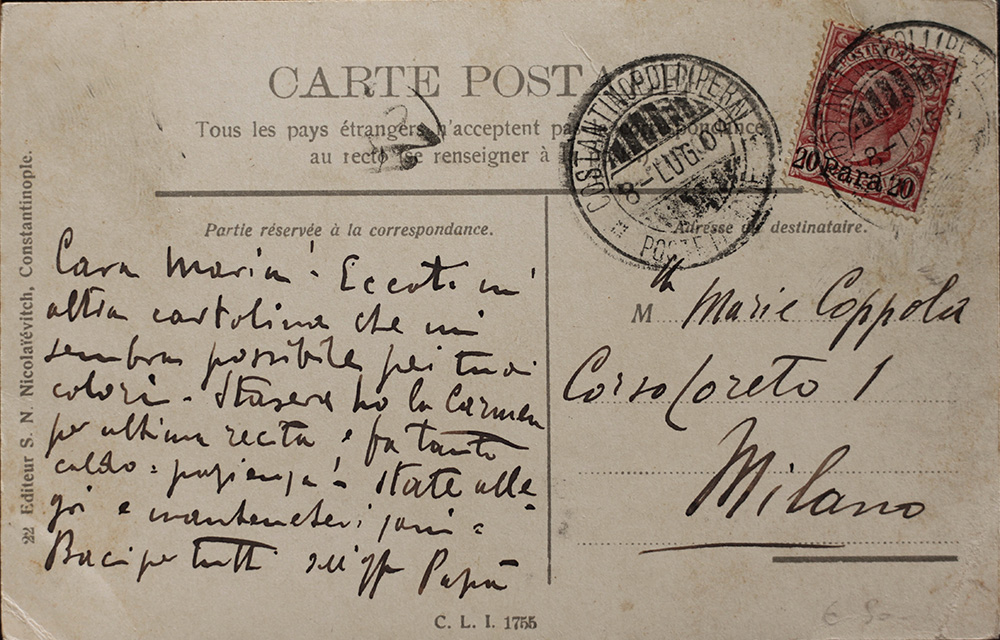 CARTE POSTA
Tous les pays étrangers n'acceptent pa
au recto se renseigner à
Partie réservée à la correspondance.
Adresse du destinataire.
COSTANTINOPOLI (PERA)
8-LUG.0
POSTE
20 Para 20
Cara Maria! Eccoti un'
altra cartolina che mi
sembra possibile pei tuoi
colori - Stasera ho la Carmen
per ultima recita e fa tanto
caldo = pazienza! State alle
gri e mantenetevi sani =
Baci per tutti dell'aff Papà
M lle Marie Coppola
Corso Loreto 1
Milano
22 Editeur S. N. Nicolaïévitch, Constantinople.
C. L. I. 1755